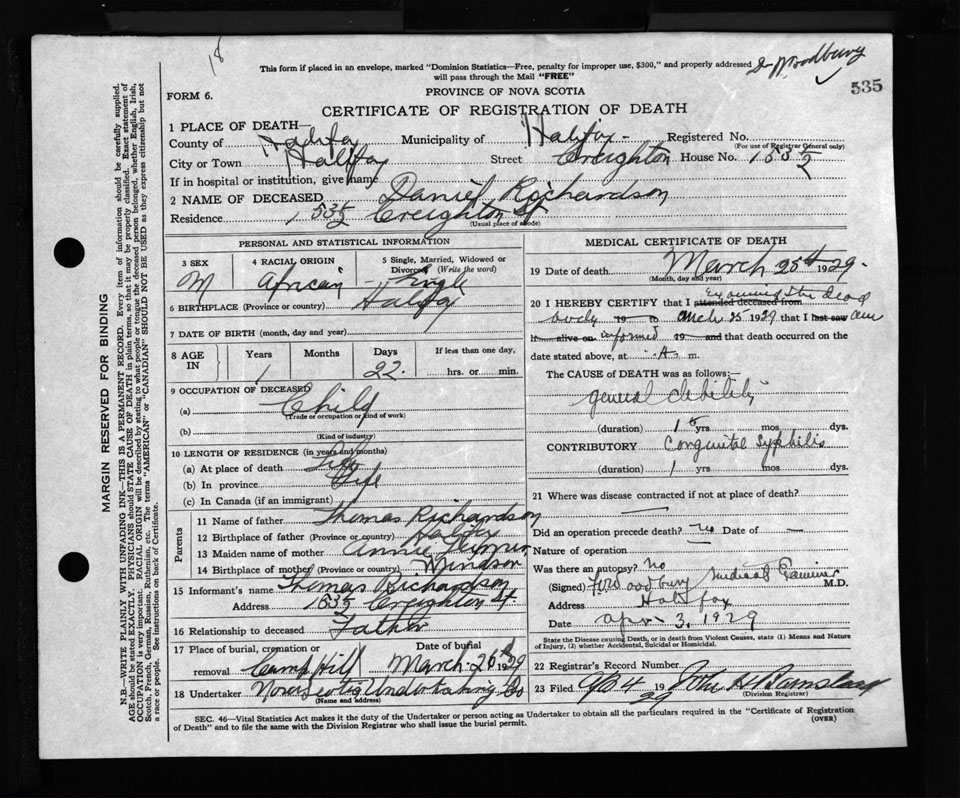 18
This form if placed in an envelope, marked "Dominion Statistics—Free, penalty for improper use, $300," and properly addressed
will pass through the Mail "FREE"
Woodbury
535
FORM 6.
PROVINCE OF NOVA SCOTIA
CERTIFICATE OF REGISTRATION OF DEATH
1 PLACE OF DEATH—
County of Halifax Municipality of Halifax - Registered No.
(For use of Registrar General only)
City or Town Halifax Street Creighton House No. 153½
If in hospital or institution, give name
2 NAME OF DECEASED Daniel Richardson
Residence 153½ Creighton St
(Usual place of abode)
PERSONAL AND STATISTICAL INFORMATION
3 SEX M
4 RACIAL ORIGIN African
5 Single, Married, Widowed or Divorced (Write the word) Single
6 BIRTHPLACE (Province or country) Halifax
7 DATE OF BIRTH (month, day and year)
8 AGE IN Years 1 Months Days 22 If less than one day, hrs. or min.
9 OCCUPATION OF DECEASED
(a) Child
(Trade or occupation or kind of work)
(b)
(Kind of industry)
10 LENGTH OF RESIDENCE (in years and months)
(a) At place of death Life
(b) In province Life
(c) In Canada (if an immigrant)
Parents
11 Name of father Thomas Richardson
12 Birthplace of father (Province or country) Halifax
13 Maiden name of mother Annie
14 Birthplace of mother (Province or country) Windsor
15 Informant's name Thomas Richardson
Address 153½ Creighton St.
16 Relationship to deceased Father
17 Place of burial, cremation or removal Camp Hill Date of burial March 26 1929
18 Undertaker Nova Scotia Undertaking Co
(Name and address)
MEDICAL CERTIFICATE OF DEATH
19 Date of death March 25th 1929.
(Month, day and year)
20 I HEREBY CERTIFY that I attended deceased from Examined the dead
body 19 to March 25 1929 that I last saw am
h alive on informed 19 and that death occurred on the
date stated above, at A. m.
The CAUSE of DEATH was as follows:—
general debility
(duration) 1 yrs mos dys.
CONTRIBUTORY Congenital Syphilis
(duration) 1 yrs mos dys.
21 Where was disease contracted if not at place of death?
Did an operation precede death? no Date of —
Nature of operation
Was there an autopsy? No
(Signed) Woodbury Medical Examiner M.D.
Address Halifax
Date Apr 3, 1929
State the Disease causing Death, or in death from Violent Causes, state (1) Means and Nature
of Injury, (2) whether Accidental, Suicidal or Homicidal.
22 Registrar's Record Number
23 Filed 4 1929 John
(Division Registrar)
SEC. 46—Vital Statistics Act makes it the duty of the Undertaker or person acting as Undertaker to obtain all the particulars required in the "Certificate of Registration
of Death" and to file the same with the Division Registrar who shall issue the burial permit.
(OVER)
MARGIN RESERVED FOR BINDING
N.B.—WRITE PLAINLY WITH UNFADING INK—THIS IS A PERMANENT RECORD. Every item of information should be carefully supplied.
AGE should be stated EXACTLY. PHYSICIANS should STATE CAUSE OF DEATH in plain terms, so that it may be properly classified. Exact statement of
OCCUPATION is very important. RACIAL ORIGIN will be described by stating to what people or tongue the deceased person belonged, whether English, Irish,
Scotch, French, German, Russian, Ruthenian, etc. The terms "AMERICAN" or "CANADIAN" SHOULD NOT BE USED as they express citizenship but not
a race or people. See instructions on back of Certificate.